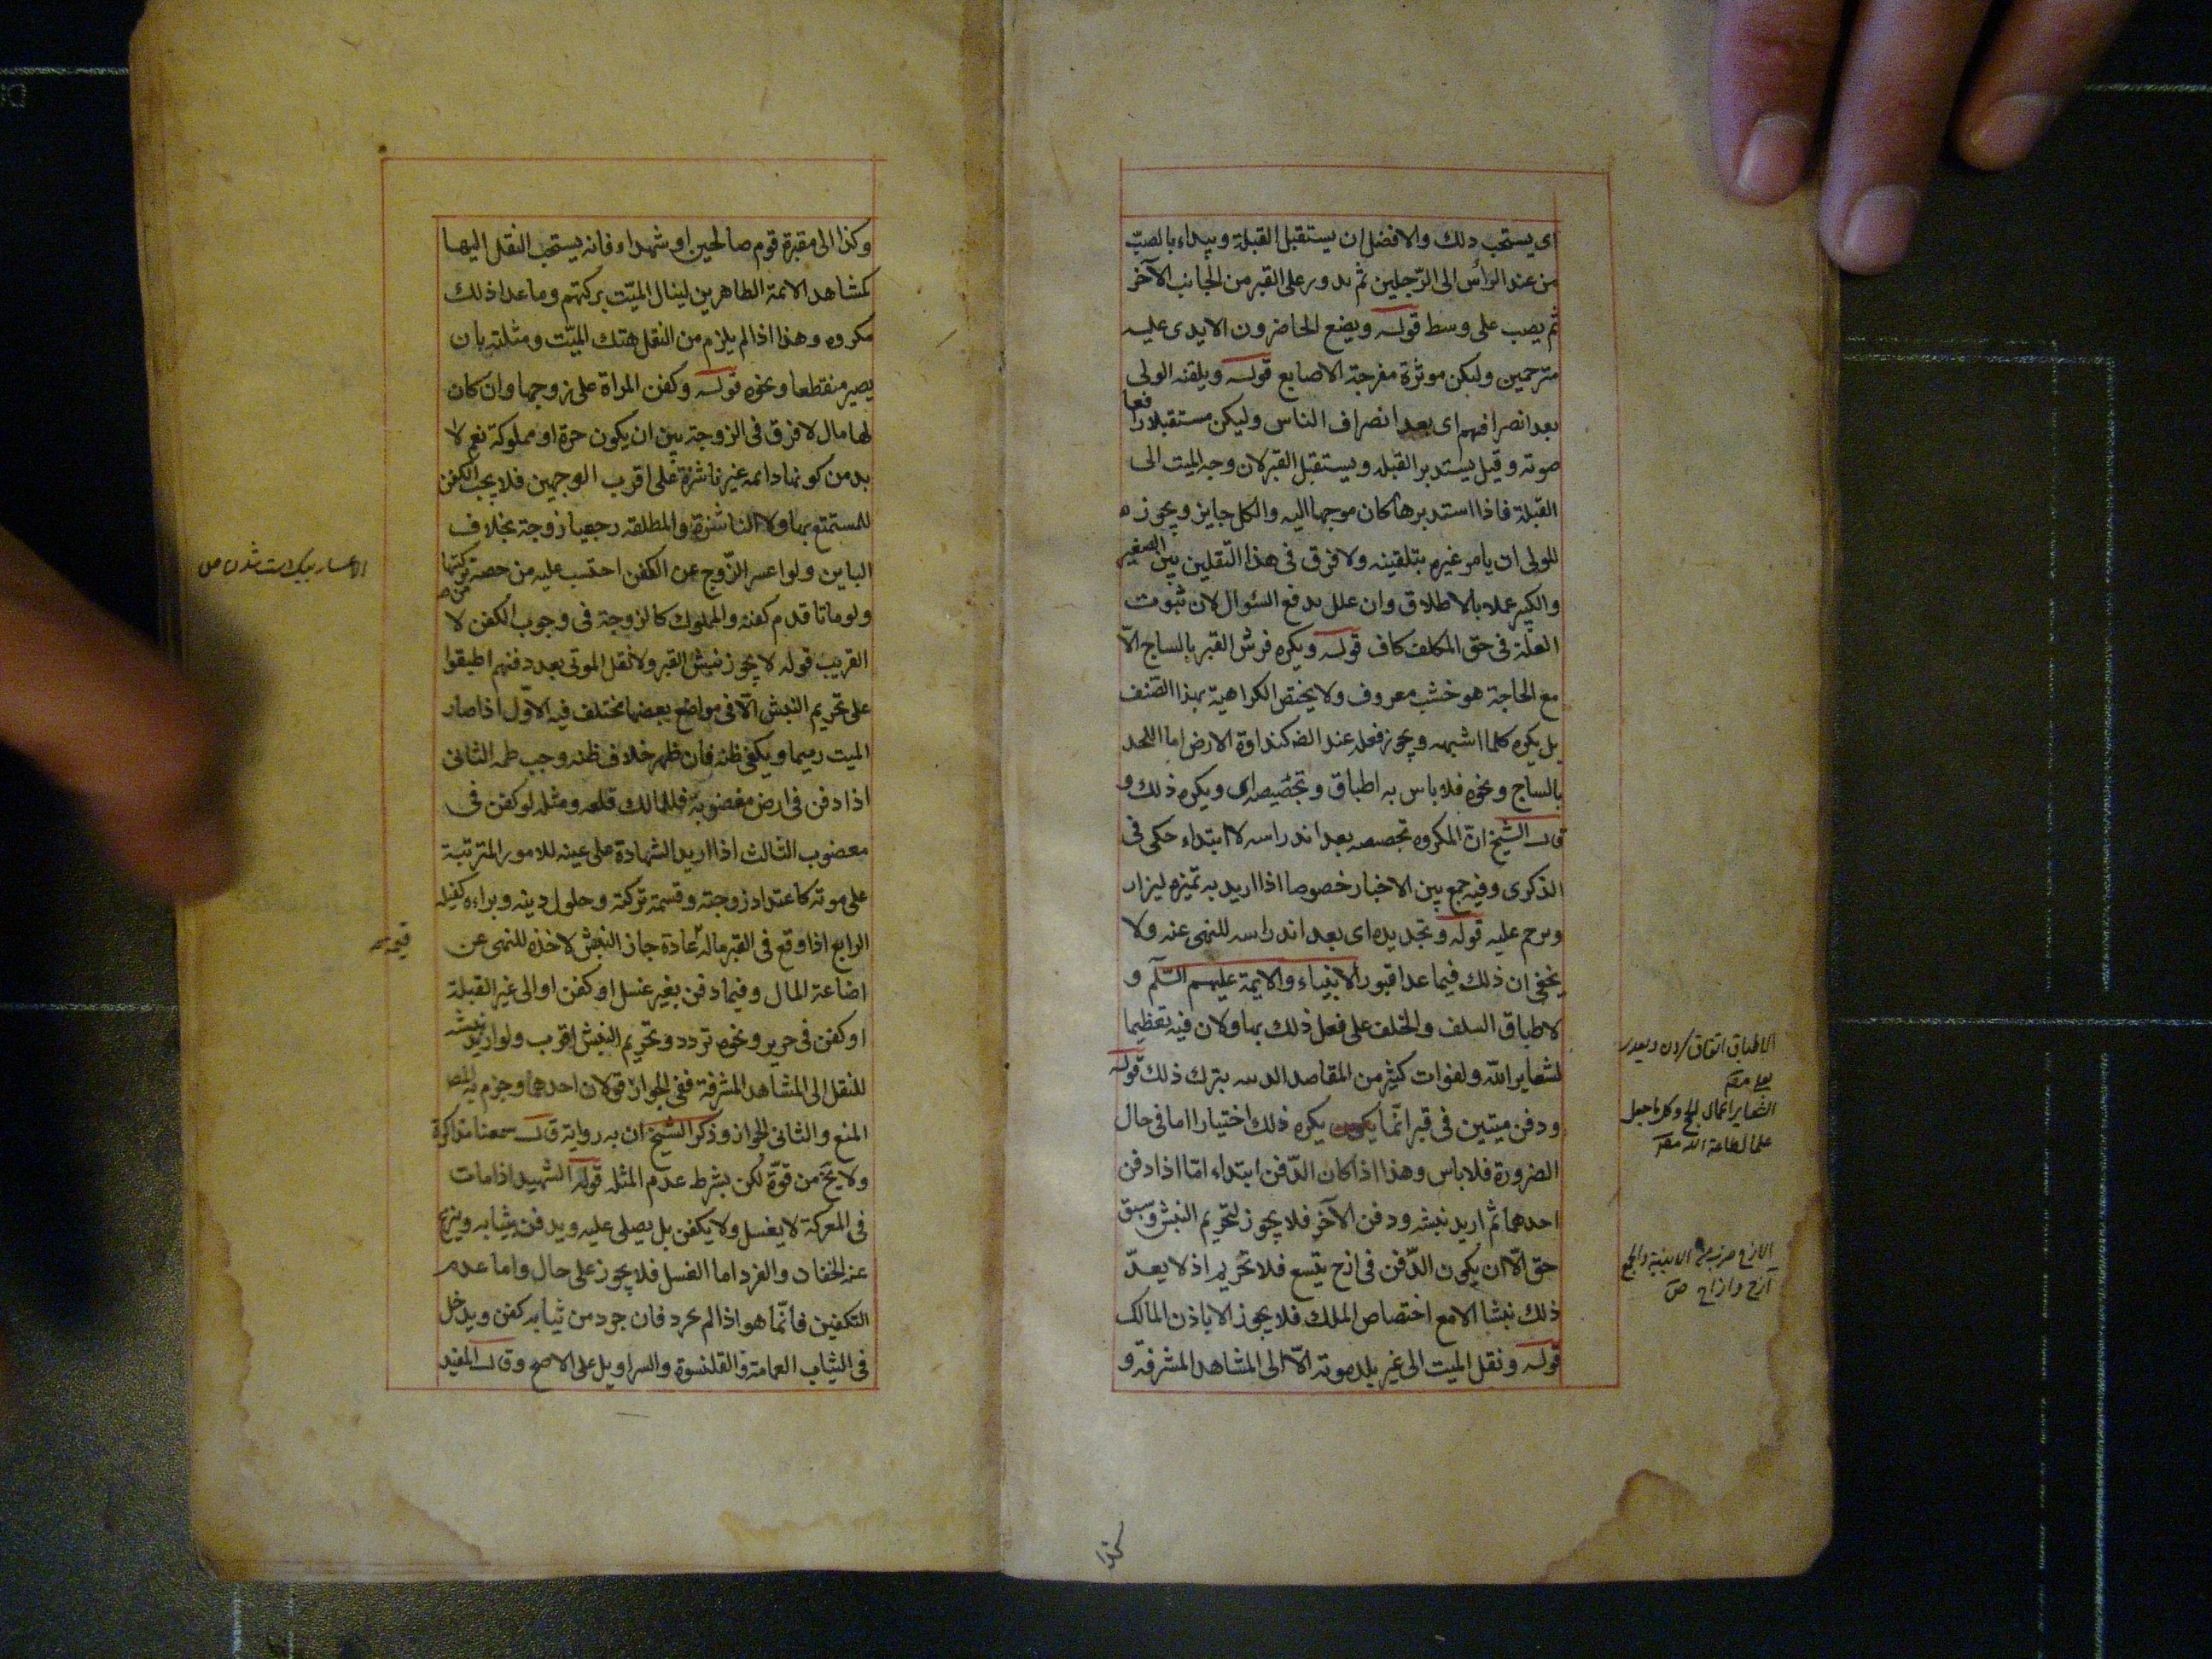 اى يستحب ذلك والافضل ان يستقبل القبلة ويبداء بالصبّ
من عند الرأس الى الرّجلين ثم يدور على القبر من الجانب الآخر
ثم يصب على وسط قوله ويضع الحاضرون الايدى عليه
مترحمين وليكن موثرة مفرجة الاصابع قوله ويلقنه الولى
بعد انصرافهم اى بعد انصراف الناس وليكن مستقبلا رافعا
صوته وقيل يستدبر القبله ويستقبل القبر لان وجه الميت الى
القبلة فاذا استدبرها كان موجها اليه والكل جايز ويجوز
للولى ان يامر غيره بتلقينه ولا فرق فى هذا التّقلين بين الصغير
والكبير عملا بالاطلاق وان علل بدفع السئوال لان ثبوت
العلّة فى حق المكلف كاف قوله ويكره فرش القبر بالساج الّا
مع الحاجة هو خشب معروف ولا يختص الكراهية بهذا الصّنف
بل يكره كلما اشبهه ويجوز فعله عند الضـ كنداوة الارض اما اللحد
بالساج ونحوه فلا باس به اطباق وتجصيصه اى ويكره ذلك و
قال الشيخ انّ المكروه تجصيصه بعد اندراسه لا ابتداء حكى فى
الذكرى وفيه جمع بين الاخبار خصوصا اذا اريد به تميزه ليزار
ويرحم عليه قوله وتجديده اى بعد اندراسه للنهى عنه ولا
يخفى ان ذلك فيما عدا قبور الانبياء والايمة عليهم السّلام و
لاطباق السلف والخلف على فعل ذلك بها ولان فيه تعظيما
لشعاير الله ولفوات كثير من المقاصد الدينيه بترك ذلك قوله
ودفن ميتين فى قبر انّما يكره ذلك اختيارا اما فى حال
الضرورة فلا باس وهذا اذا كان الدّفن ابتداء امّا اذا دفن
احدهما ثم اريد نبشه ودفن الآخر فلا يجوز لتحريم النبش وسبق
حق الّا ان يكون الدّفن فى ازج يتّسع فلا تحريم اذ لا يعدّ
ذلك نبشا الا مع اختصاص الملك فلا يجوز الا باذن المالك
قوله ونقل الميت الى غير بلد موته الّا الى المشاهد المشرفة و
الاطباق اتفاق كردن
الشعاير اعمال الحج وكل ما جعل
علما لطاعة الله
الازج ضرب من الابنية والجمع
آزج وازاج ص
وكذا
وكذا الى مقبرة قوم صالحين او شهداء فانه يستحب النقل اليها
كمشاهد الائمة الطاهرين لينال الميّت بركتهم وما عدا ذلك
مكروه وهذا اذا لم يلزم من النقل هتك الميّت ومثلته بان
يصير منقطعا ونحوه قوله وكفن المراة على زوجها وان كان
لها مال لا فرق فى الزوجة بين ان يكون حرة او مملوكة نعم لا
بد من كونها دائمه غير ناشزة على اقرب الوجهين فلا يجب الكفن
للمستمتع بها ولا الناشزة والمطلقه رجعيا زوجة بخلاف
الباين ولو اعسر الزّوج عن الكفن احتسب عليه من حصته من تركتها
ولو ماتا قدم كفنه والمملوك كالزوجة فى وجوب الكفن لا
القريب قوله لا يجوز نبش القبر ولا نقل الموتى بعد دفنهم اطبقوا
على تحريم النبش الّا فى مواضع بعضها مختلف فيه الاوّل اذا صار
الميت رميما ويكفى ظنه فان ظهر خلاف ظنه وجب طمه الثانى
اذا دفن فى ارض مغصوبة فللمالك قلعه ومثله لو كفن فى
مغصوب الثالث اذا اريد الشهادة على عينه للامور المترتبة
على موته كاعتداد زوجته وقسمة تركته وحلول دينه وبراءه كفيله
الرابع اذا وقع فى القبر ماله عادة جاز النبش لاخذه للنهى عن
اضاعة المال وفيما دفن بغير غسل او كفن او الى غير القبلة
او كفن فى حرير ونحوه تردد وتحريم النبش اقرب ولو اريد نبشه
للنقل الى المشاهد المشرفة ففى الجواز قولان احدهما وجزم به المصـ
المنع والثانى الجواز وذكر الشيخ ان به رواية قال سمعنا مذاكرة
ولا يخ من قوّة لكن بشرط عدم المثلة قوله الشهيد اذا مات
فى المعركة لا يغسل ولا يكفن بل يصلى عليه ويدفن بثيابه وينزع
عنه الخفان والفرد اما الغسل فلا يجوز على حال واما عدم
التكفين فانّما هو اذا لم يجرد فان جرد من ثيابه كفن ويدخل
فى الثياب العمامة والقلنسوة والسراويل على الاصح وقال المفيد
قيمة